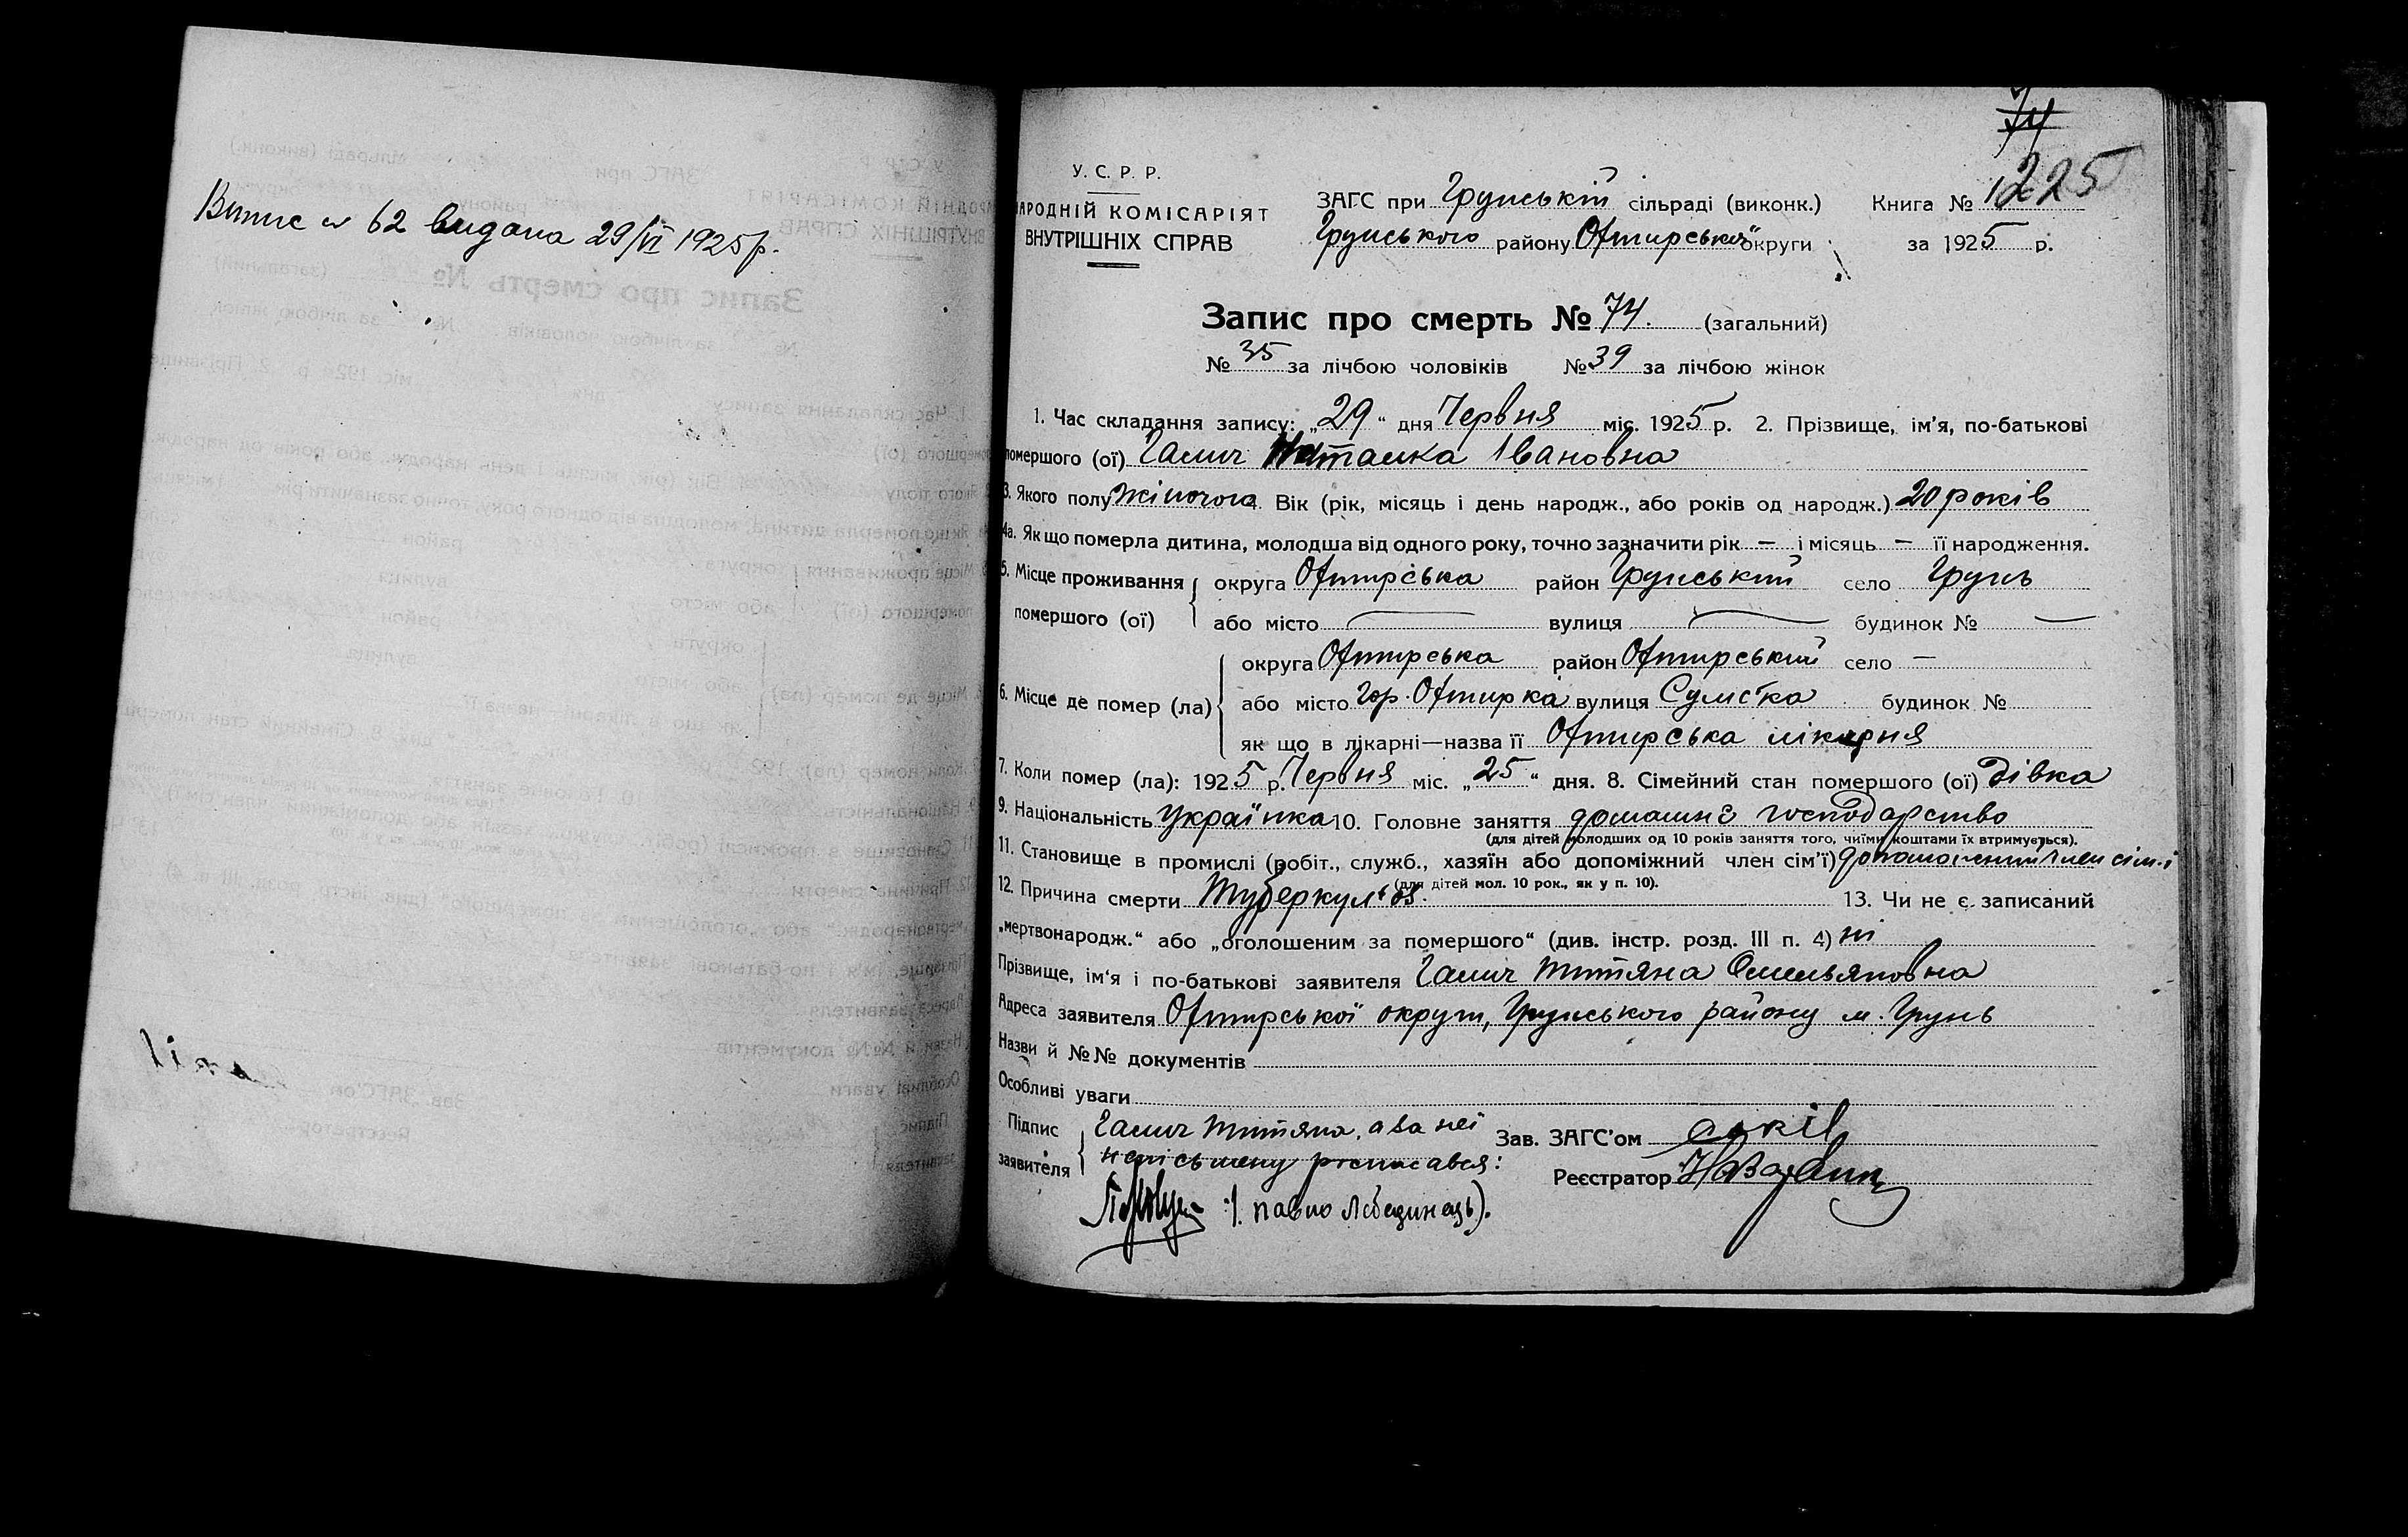 Випис № 62 видана 29/VI 1925 р.
74
225
У. С. Р. Р.
НАРОДНІЙ КОМІСАРІЯТ
ВНУТРІШНІХ СПРАВ
ЗАГС при Грунській сільраді (виконк.) Книга № 1
Грунського району Охтирської округи за 1925 р.
Запис про смерть № 74. (загальний)
№ 35 за лічбою чоловіків № 39 за лічбою жінок
1. Час складання запису: „29“ дня Червня міс. 1925 р. 2. Прізвище, ім'я, по-батькові
помершого (ої) Галич Наталка Івановна
3. Якого полу жіночого 4. Вік (рік, місяць і день народж., або років од народж.) 20 років
4а. Як що померла дитина, молодша від одного року, точно зазначити рік — і місяць — її народження.
5. Місце проживання помершого (ої) округа Охтирська район Грунський село Грунь
або місто — вулиця — будинок № —
6. Місце де помер (ла) округа Охтирська район Охтирський село —
або місто гор. Охтирка вулиця Сумська будинок №
як що в лікарні—назва її Охтирська лікарня
7. Коли помер (ла): 1925 р. Червня міс. „25“ дня. 8. Сімейний стан помершого (ої) дівка
9. Національність Українка 10. Головне заняття домашнє господарство
(для дітей молодших од 10 років заняття того, чиїми коштами їх втримується).
11. Становище в промислі (робіт., служб., хазяїн або допоміжний член сім'ї) допоможний член сім-ї
(для дітей мол. 10 рок., як у п. 10).
12. Причина смерти Туберкульоз. 13. Чи не є записаний
„мертвонародж.“ або „оголошеним за помершого“ (див. інстр. розд. III п. 4) ні
Прізвище, ім'я і по-батькові заявителя Галич Титяна Омельяновна
Адреса заявителя Охтирської округи, Грунського району м. Грунь
Назви й №№ документів
Особливі уваги
Підпис заявителя Галич Титяна, а за неї
непісьмену росписався:
(Павло Лебединець).
Зав. ЗАГС'ом
Реєстратор